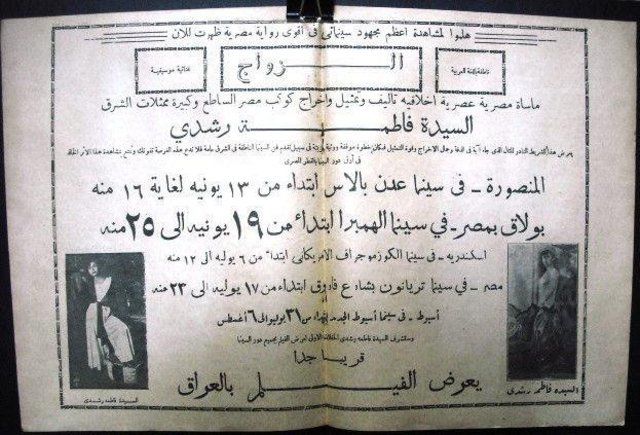 هلموا لمشاهدة اعظم مجهود سينمائى فى أقوى رواية مصرية ظهرت للآن
ناطقة باللغة العربية
الــزواج
غنائية موسيقية
مأساة مصرية عصرية اخلاقيه تأليف وتمثيل واخراج كوكب مصر الساطع وكبيرة ممثلات الشرق
السيدة فاطمة رشدي
المنصورة – فى سينما عدن بالاس ابتداء من ١٣ يونيه لغاية ١٦ منه
بولاق بمصر – في سينما الهمبرا ابتداء من ١٩ يونيه الى ٢٥ منه
اسكندريه – فى سينما الكوزموجراف الامريكانى ابتداء من ٦ يوليه الى ١٢ منه
مصر – فى سينما تريانون بشارع فاروق ابتداء من ١٧ يوليه الى ٢٣ منه
أسيوط – فى سينما أسيوط الجديد ابتداء من ٣١ يوليو الى ٦ أغسطس
وستشرف السيدة فاطمه رشدى الحفلات الاولى لعرض الفيلم بجميع دور السينما
قريبا جدا
يعرض الفيلم بالعراق
السيدة فاطمه رشدى
السيده فاطمه رشدى